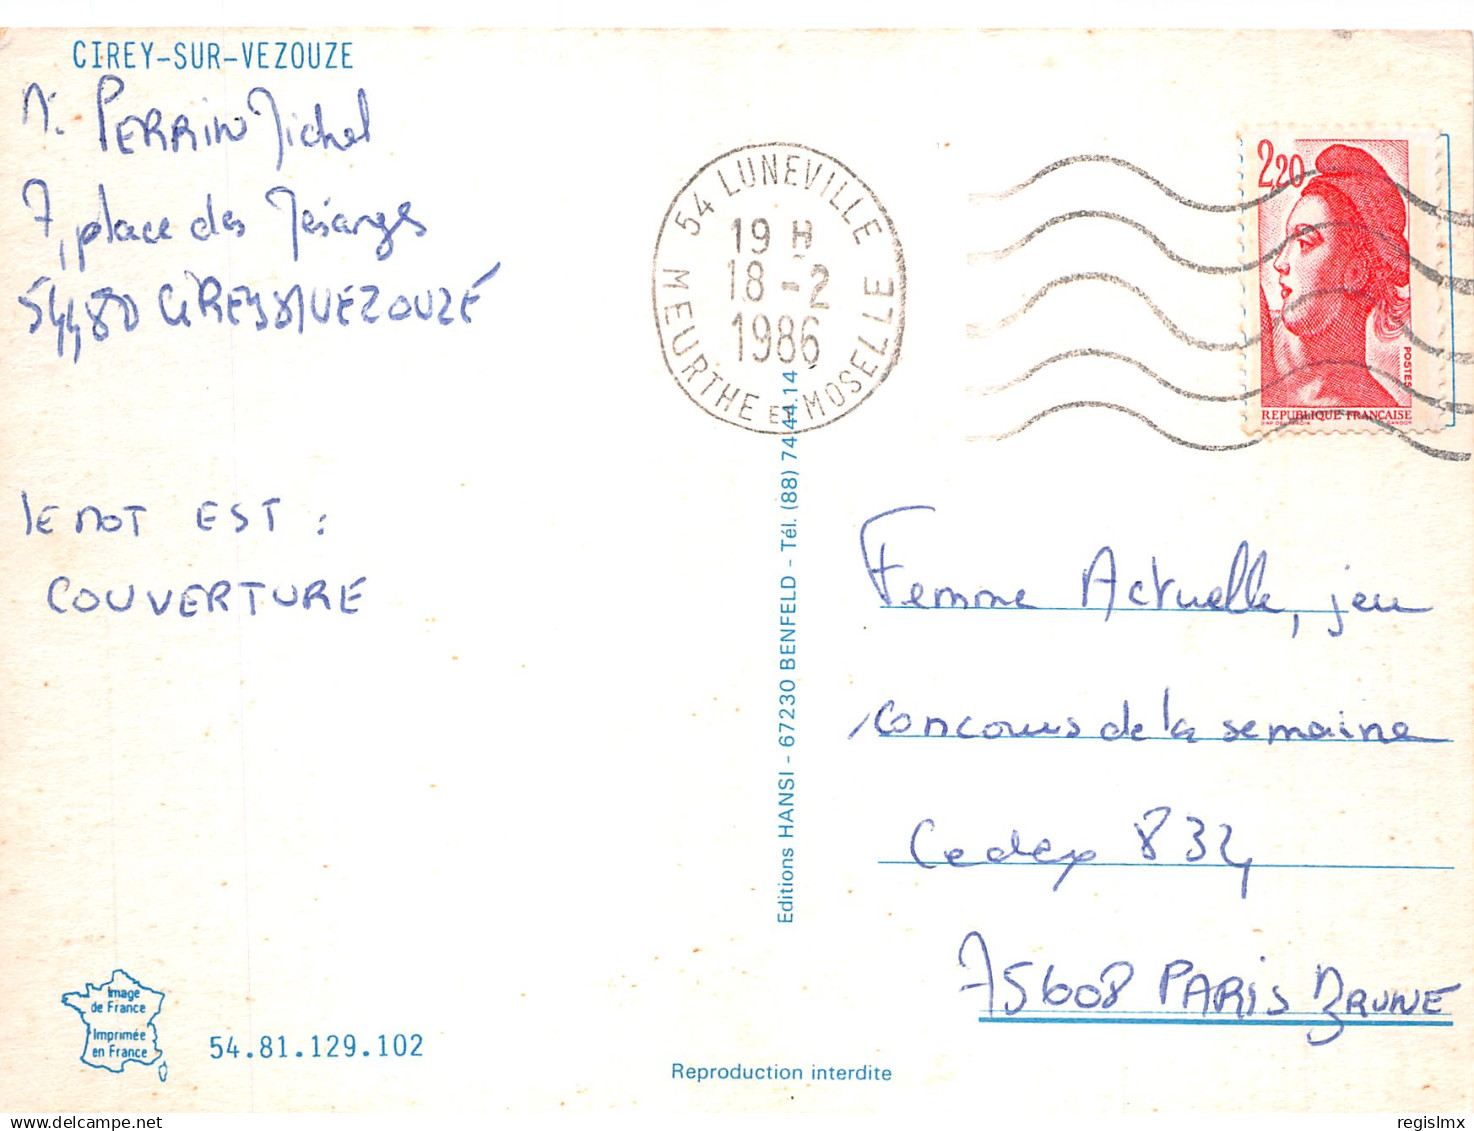 CIREY-SUR-VEZOUZE
M. PERRIN Michel
7, place des Mésanges
54480 CIREY SUR VEZOUZE
le mot EST :
COUVERTURE
54 LUNEVILLE
19 H
18-2
1986
MEURTHE ET MOSELLE
2,20
POSTES
REPUBLIQUE FRANCAISE
Femme Actuelle, jeu
concours de la semaine
Cedex 834
75608 PARIS BRUNE
Editions HANSI - 67230 BENFELD - Tél. (88) 74.44.14
Image
de France
Imprimée
en France
54.81.129.102
Reproduction interdite
regislmx